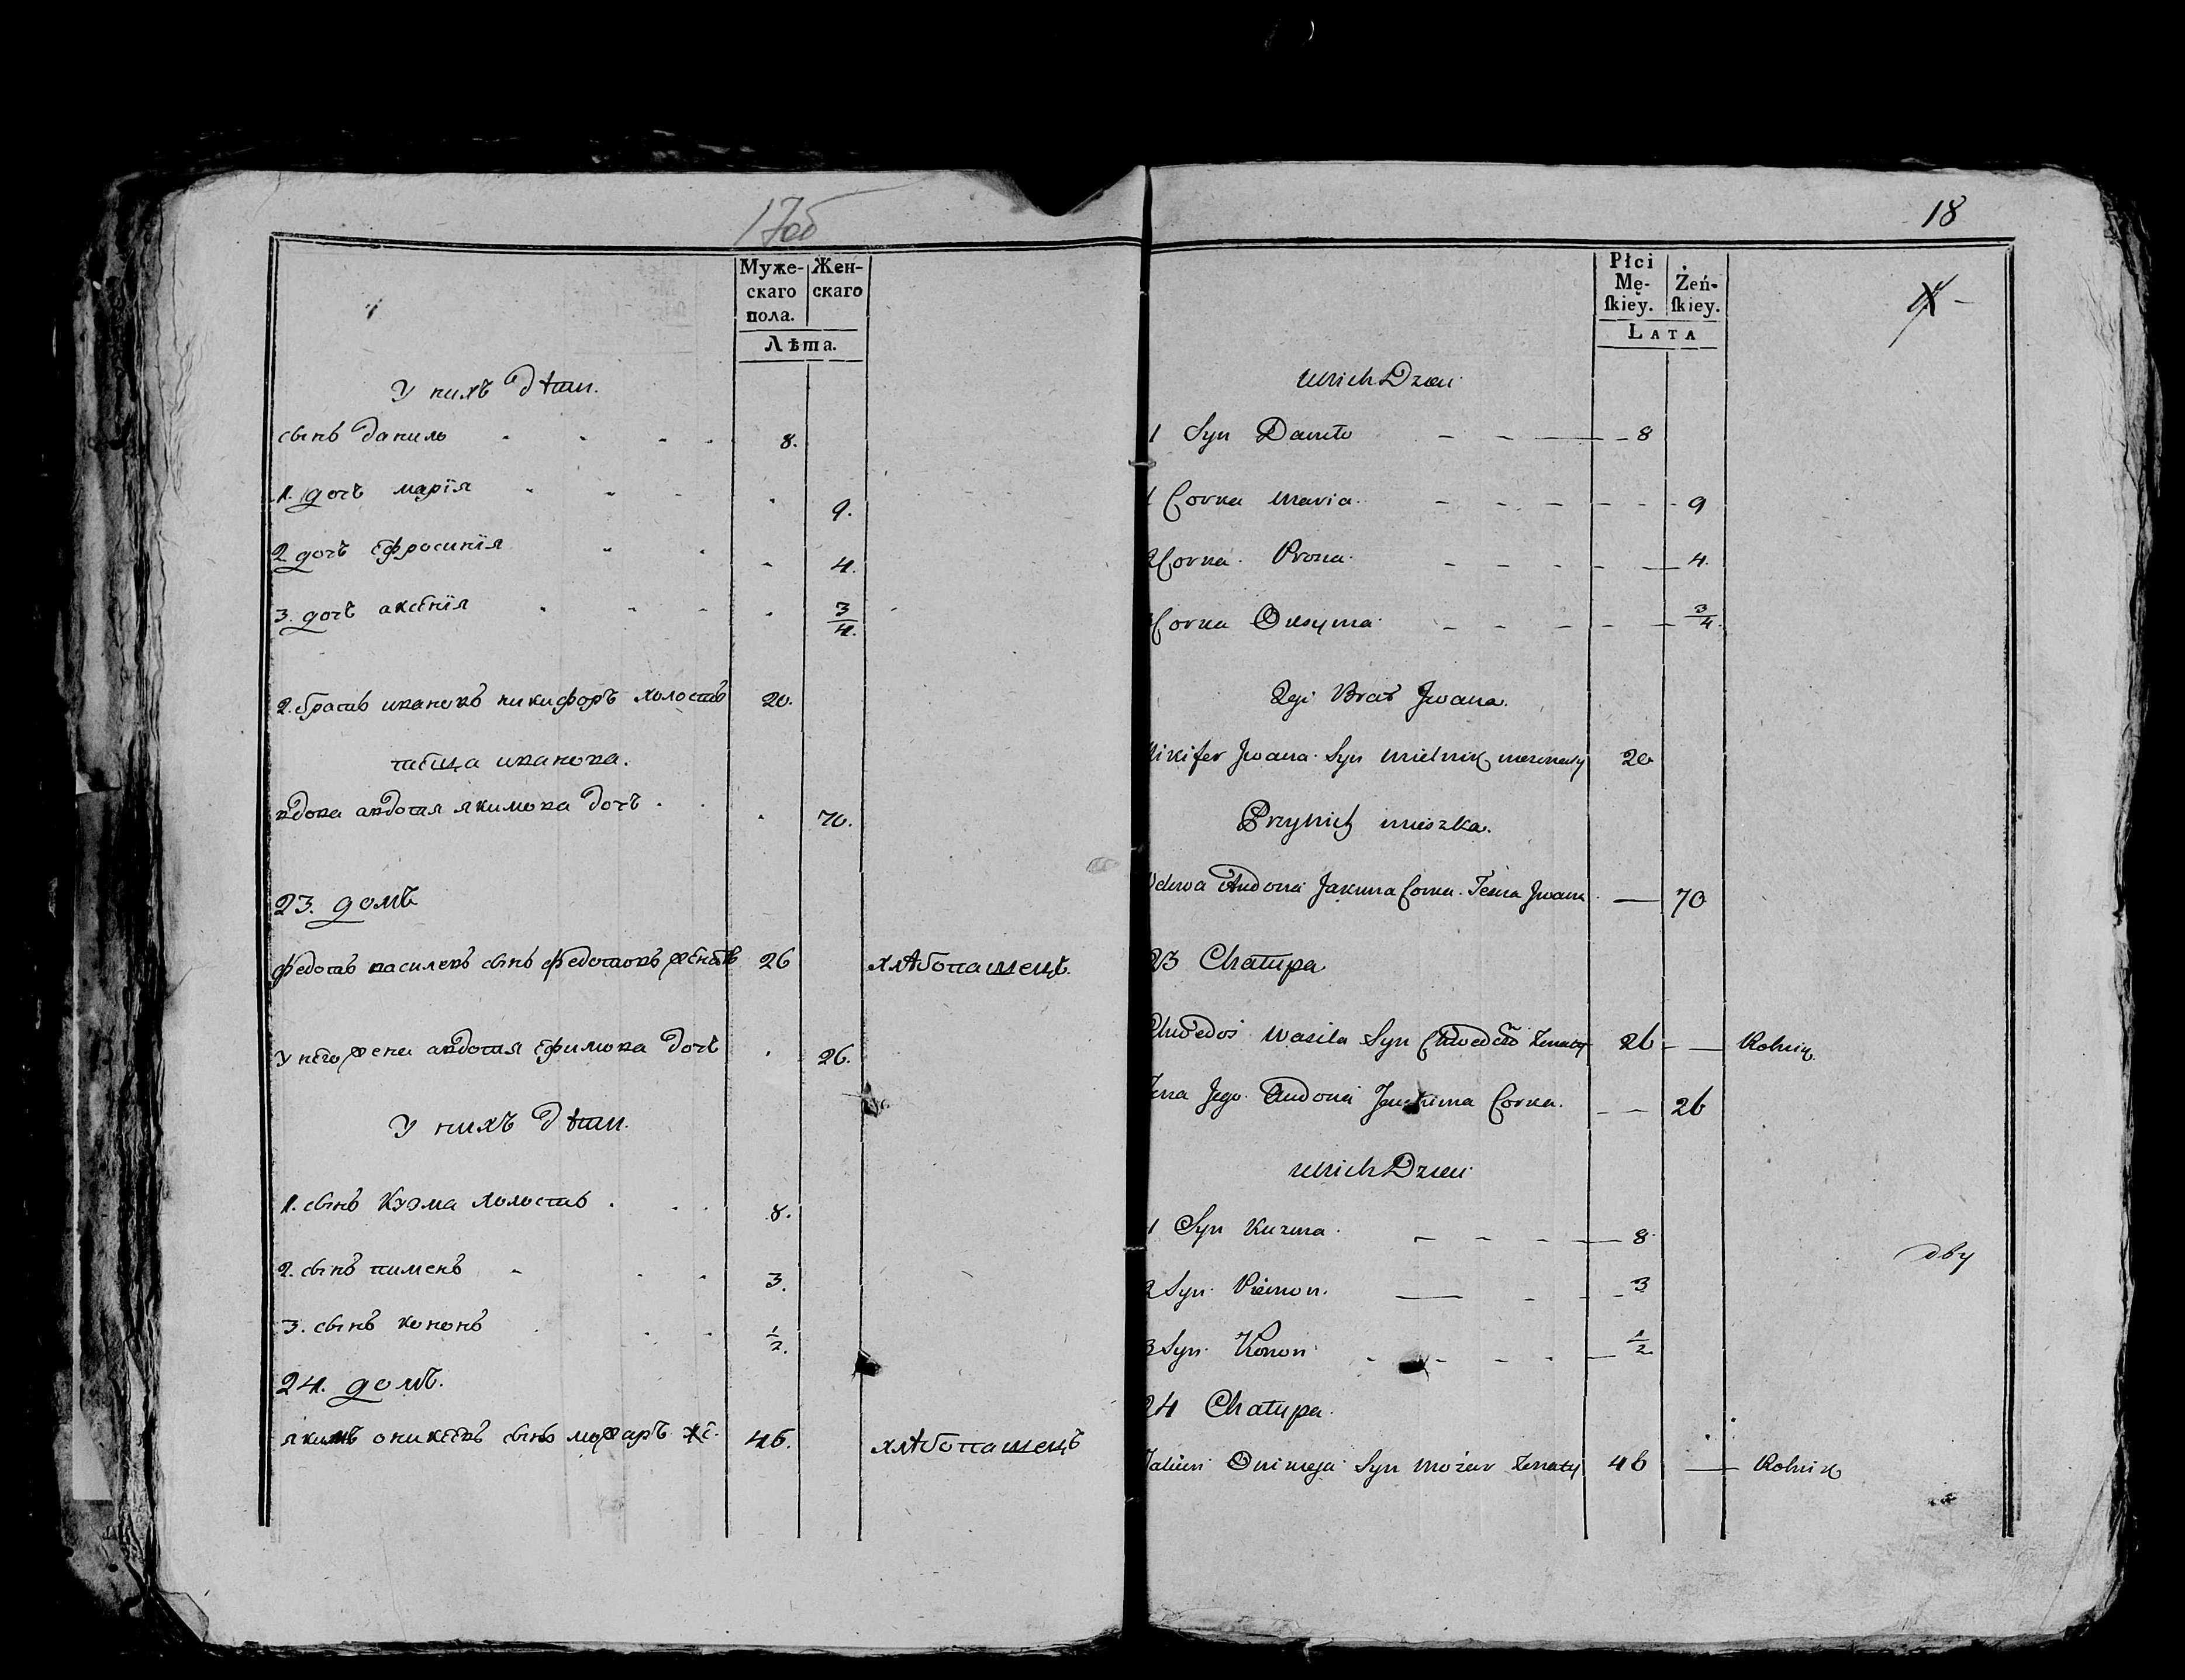 17об
Муже- Жен-
скаго скаго
пола.
Лѣта.
У нихъ дѣти.
сынъ данило 8.
1. дочь марїя 9.
2. дочь Ефросинїя 4.
3. дочь аксенїя 3/4.
2. братъ ивановъ никифоръ холостъ 20.
теща иванова.
вдова авдотия якимова дочь 70.
23. домъ
федотъ василевъ сынъ федотовъ женатъ 26 хлѣбопашецъ.
у него жена авдотия Ефимова дочь 26.
У нихъ дѣти.
1. сынъ Кузма холостъ 8.
2. сынъ пименъ 3.
3. сынъ кононъ 1/2.
24. домъ.
якимъ сынъ можаръ 46. хлѣбопашецъ
18
Płci
Mę- Żeń-
ſkiey. ſkiey.
LATA
U nich Dzieci
1 Syn Daniło 8
1 Corka Maria 9
2 Corka Prona 4
Corka 3/4
2gi Brat Jwana
Nikifor Jwana Syn Mielnik nieżonaty 20
Przy nich mieszka
Wdowa Audotia Jakima Corka Teścia Jwana 70
23 Chałupa
Chwedoś Wasila Syn Żonaty 26 Rolnik
Żona Jego Audotia Corka 26
U nich Dzieci
1 Syn Kuzma 8
2 Syn Piemon 3
3 Syn Konon 1/2
24 Chałupa
Syn Możar Żonaty 46 Rolnik